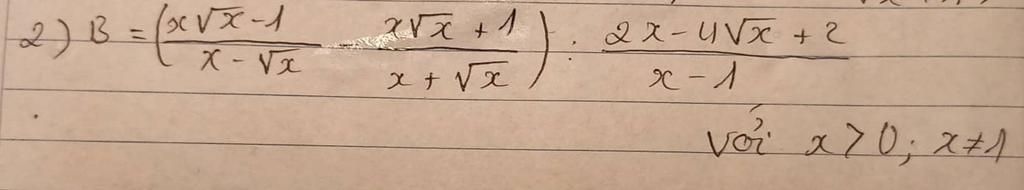 2) B = (\frac{x\sqrt{x} - 1}{x - \sqrt{x}} - \frac{x\sqrt{x} + 1}{x + \sqrt{x}}) : \frac{2x - 4\sqrt{x} + 2}{x - 1}
với x > 0; x ≠ 1